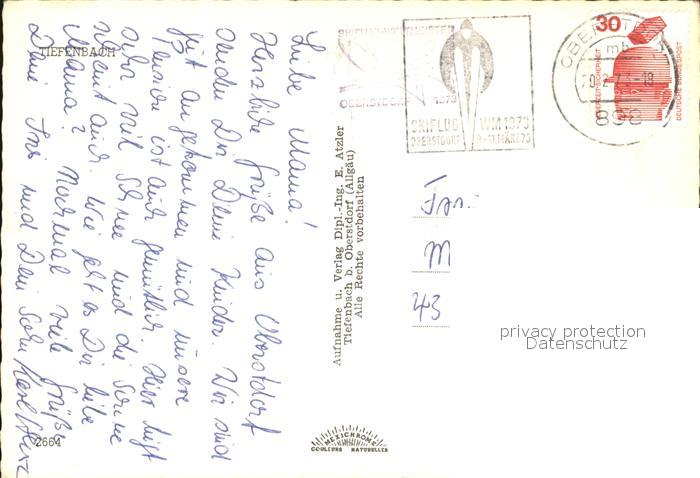 TIEFENBACH
Liebe Mama!
Herzliche Grüße aus Oberstdorf
senden Dir Deine Kinder. Wir sind
gut angekommen und unsere
Pension ist auch gemütlich. Hier liegt
sehr viel Schnee und die Sonne
scheint auch. Wie geht es Dir liebe
Mama? Nochmal viele Grüße
Deine und Dein Sohn
2664
Aufnahme u. Verlag Dipl.-Ing. E. Atzler
Tiefenbach b. Oberstdorf (Allgäu)
Alle Rechte vorbehalten
MEXICHROME
COULEURS NATURELLES
OBERSTDORF 1973
SKIFLUG WM 1973
OBERSTDORF
30
JEDERZEIT SICHERHEIT
DEUTSCHE BUNDESPOST
mb
898
M
43
privacy protection
Datenschutz